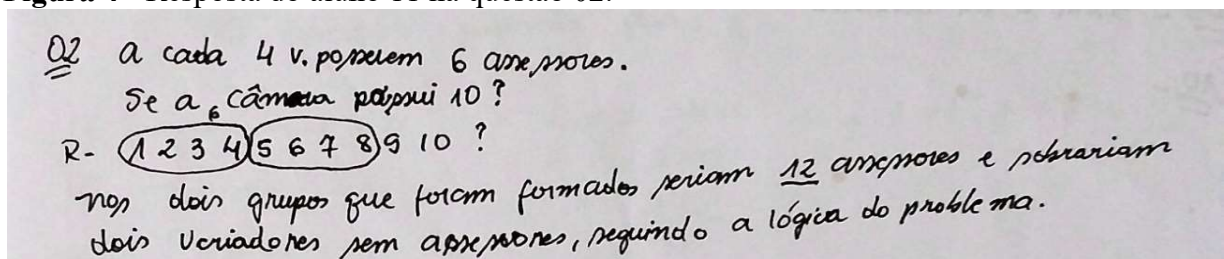 02 a cada 4 v. possuem 6 assessores.
Se a câmara possui 10?
6
R- 1 2 3 4 5 6 7 8 9 10 ?
nos dois grupos que foram formados seriam 12 assessores e sobrariam
dois veriadores sem assessores, seguindo a lógica do problema.